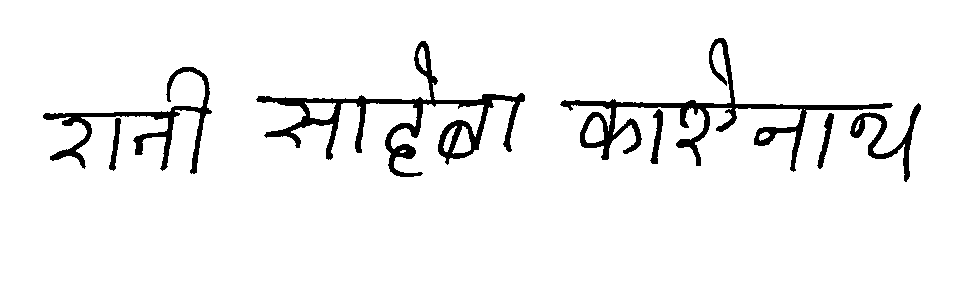 रानी साहेबा काशेनाथ